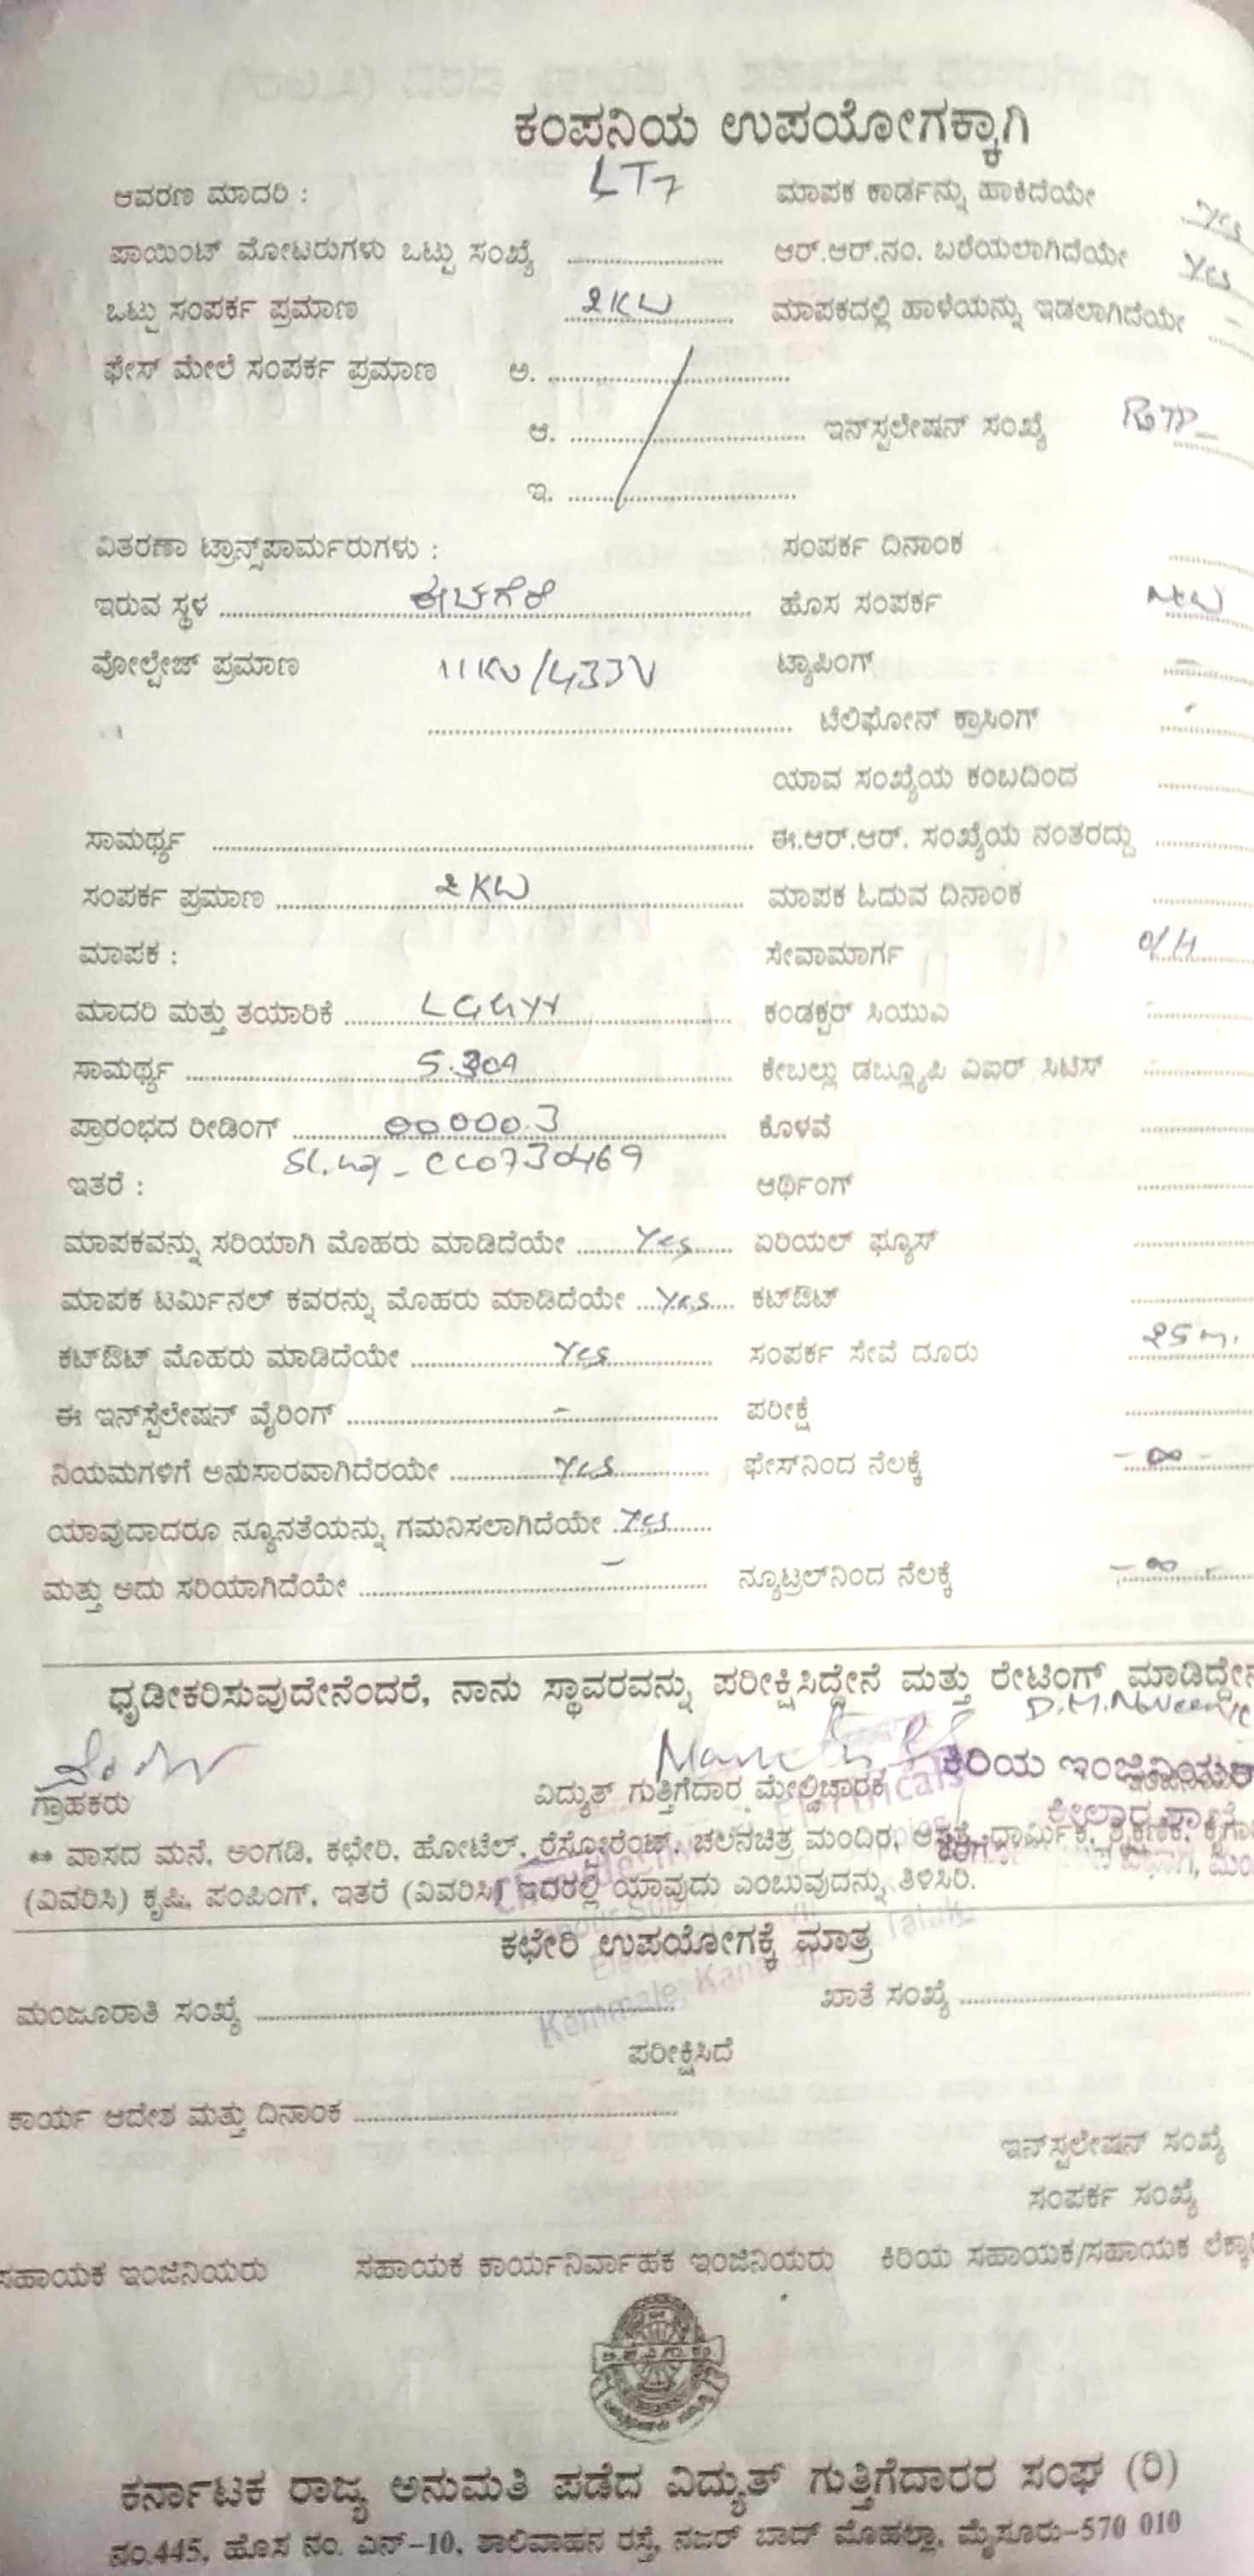 ಕಂಪನಿಯ ಉಪಯೋಗಕ್ಕಾಗಿ
ಆವರಣ ಮಾದರಿ : LT7 ಮಾಪಕ ಕಾರ್ಡನ್ನು ಹಾಕಿದೆಯೇ Yes
ಪಾಯಿಂಟ್ ಮೋಟರುಗಳು ಒಟ್ಟು ಸಂಖ್ಯೆ .................. ಆರ್.ಆರ್.ನಂ. ಬರೆಯಲಾಗಿದೆಯೇ Yes
ಒಟ್ಟು ಸಂಪರ್ಕ ಪ್ರಮಾಣ 2KW ಮಾಪಕದಲ್ಲಿ ಹಾಳೆಯನ್ನು ಇಡಲಾಗಿದೆಯೇ -
ಫೇಸ್ ಮೇಲೆ ಸಂಪರ್ಕ ಪ್ರಮಾಣ ಅ. ..................
ಆ. .................. ಇನ್‌ಸ್ಪಲೇಷನ್ ಸಂಖ್ಯೆ
ಇ. ..................
ವಿತರಣಾ ಟ್ರಾನ್ಸ್‌ಪಾರ್ಮರುಗಳು : ಸಂಪರ್ಕ ದಿನಾಂಕ
ಇರುವ ಸ್ಥಳ .................. ಹೊಸ ಸಂಪರ್ಕ New
ವೋಲ್ಟೇಜ್ ಪ್ರಮಾಣ 11KV/433V ಟ್ಯಾಪಿಂಗ್ -
.................. ಟೆಲಿಫೋನ್ ಕ್ರಾಸಿಂಗ್
ಯಾವ ಸಂಖ್ಯೆಯ ಕಂಬದಿಂದ
ಸಾಮರ್ಥ್ಯ .................. ಈ.ಆರ್.ಆರ್. ಸಂಖ್ಯೆಯ ನಂತರದ್ದು
ಸಂಪರ್ಕ ಪ್ರಮಾಣ 2KW ಮಾಪಕ ಓದುವ ದಿನಾಂಕ
ಮಾಪಕ : ಸೇವಾಮಾರ್ಗ O/H
ಮಾದರಿ ಮತ್ತು ತಯಾರಿಕೆ .................. ಕಂಡಕ್ಟರ್ ಸಿಯುಎ
ಸಾಮರ್ಥ್ಯ .................. ಕೇಬಲ್ಲು ಡಬ್ಲ್ಯೂಪಿ ವಿಐಆರ್ ಸಿಟಿಸ್
ಪ್ರಾರಂಭದ ರೀಡಿಂಗ್ 00000.3 ಕೊಳವೆ
Sl.no - CC0730469
ಇತರೆ : ಆರ್ಥಿಂಗ್
ಮಾಪಕವನ್ನು ಸರಿಯಾಗಿ ಮೊಹರು ಮಾಡಿದೆಯೇ Yes ಏರಿಯಲ್ ಫ್ಯೂಸ್
ಮಾಪಕ ಟರ್ಮಿನಲ್ ಕವರನ್ನು ಮೊಹರು ಮಾಡಿದೆಯೇ Yes ಕಟ್‌ಔಟ್
ಕಟ್‌ಔಟ್ ಮೊಹರು ಮಾಡಿದೆಯೇ Yes ಸಂಪರ್ಕ ಸೇವೆ ದೂರು 25 m.
ಈ ಇನ್‌ಸ್ಪೆಲೇಷನ್ ವೈರಿಂಗ್ - ಪರೀಕ್ಷೆ
ನಿಯಮಗಳಿಗೆ ಅನುಸಾರವಾಗಿದೆರಯೇ Yes ಫೇಸ್‌ನಿಂದ ನೆಲಕ್ಕೆ - ∞ -
ಯಾವುದಾದರೂ ನ್ಯೂನತೆಯನ್ನು ಗಮನಿಸಲಾಗಿದೆಯೇ Yes
ಮತ್ತು ಅದು ಸರಿಯಾಗಿದೆಯೇ - ನ್ಯೂಟ್ರಲ್‌ನಿಂದ ನೆಲಕ್ಕೆ - ∞ -
ಧೃಡೀಕರಿಸುವುದೇನೆಂದರೆ, ನಾನು ಸ್ಥಾವರವನ್ನು ಪರೀಕ್ಷಿಸಿದ್ದೇನೆ ಮತ್ತು ರೇಟಿಂಗ್ ಮಾಡಿದ್ದೇನೆ
ಗ್ರಾಹಕರು ವಿದ್ಯುತ್ ಗುತ್ತಿಗೆದಾರ ಮೇಲ್ವಿಚಾರಕ ಕಿರಿಯ ಇಂಜಿನಿಯರ್
** ವಾಸದ ಮನೆ, ಅಂಗಡಿ, ಕಛೇರಿ, ಹೋಟೆಲ್, ರೆಸ್ಟೋರೆಂಟ್, ಚಲನಚಿತ್ರ ಮಂದಿರ, ಆಸ್ಪತ್ರೆ, ಧಾರ್ಮಿಕ, ಶೈಕ್ಷಣಿಕ,
(ವಿವರಿಸಿ) ಕೃಷಿ, ಪಂಪಿಂಗ್, ಇತರೆ (ವಿವರಿಸಿ) ಇದರಲ್ಲಿ ಯಾವುದು ಎಂಬುವುದನ್ನು ತಿಳಿಸಿರಿ.
ಕಛೇರಿ ಉಪಯೋಗಕ್ಕೆ ಮಾತ್ರ
ಮಂಜೂರಾತಿ ಸಂಖ್ಯೆ .................. ಖಾತೆ ಸಂಖ್ಯೆ ..................
ಪರೀಕ್ಷಿಸಿದೆ
ಕಾರ್ಯ ಆದೇಶ ಮತ್ತು ದಿನಾಂಕ ..................
ಇನ್‌ಸ್ಪಲೇಷನ್ ಸಂಖ್ಯೆ
ಸಂಪರ್ಕ ಸಂಖ್ಯೆ
ಸಹಾಯಕ ಇಂಜಿನಿಯರು ಸಹಾಯಕ ಕಾರ್ಯನಿರ್ವಾಹಕ ಇಂಜಿನಿಯರು ಕಿರಿಯ ಸಹಾಯಕ/ಸಹಾಯಕ
ಕರ್ನಾಟಕ ರಾಜ್ಯ ಅನುಮತಿ ಪಡೆದ ವಿದ್ಯುತ್ ಗುತ್ತಿಗೆದಾರರ ಸಂಘ (ರಿ)
ನಂ.445, ಹೊಸ ನಂ. ಎನ್-10, ಶಾಲಿವಾಹನ ರಸ್ತೆ, ನಜರ್ ಬಾದ್ ಮೊಹಲ್ಲಾ, ಮೈಸೂರು-570 010